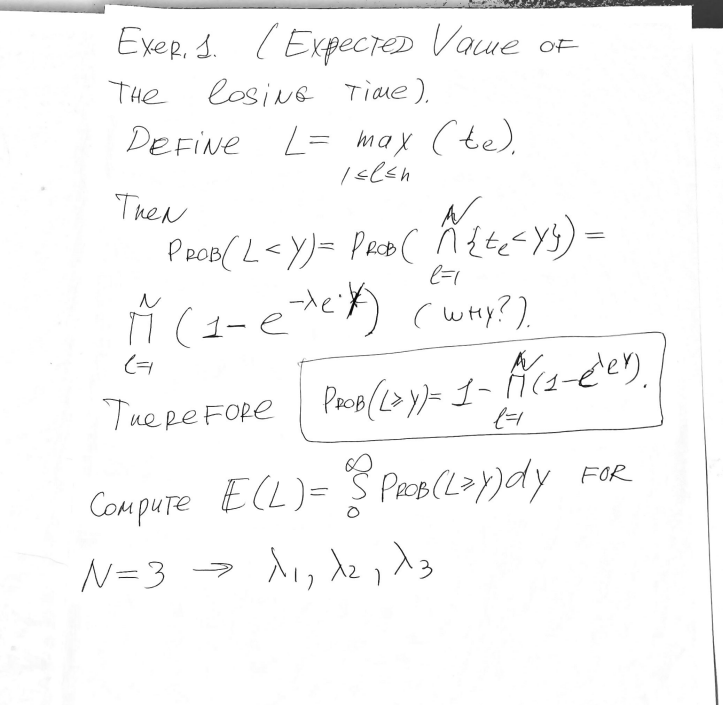 Exer. 1. (Expected Value of
the losing time).
Define L = max (tₑ).
1≤l≤n
Then
Prob(L < y) = Prob( ∩ {tₑ < y}) =
N
l=1
N
∏ (1 - e^{-λₑ·y}) (why?).
l=1
Therefore Prob(L ≥ y) = 1 - ∏ (1 - e^{λₑy}).
N
l=1
Compute E(L) = ∫₀^∞ Prob(L ≥ y) dy for
N = 3 → λ₁, λ₂, λ₃